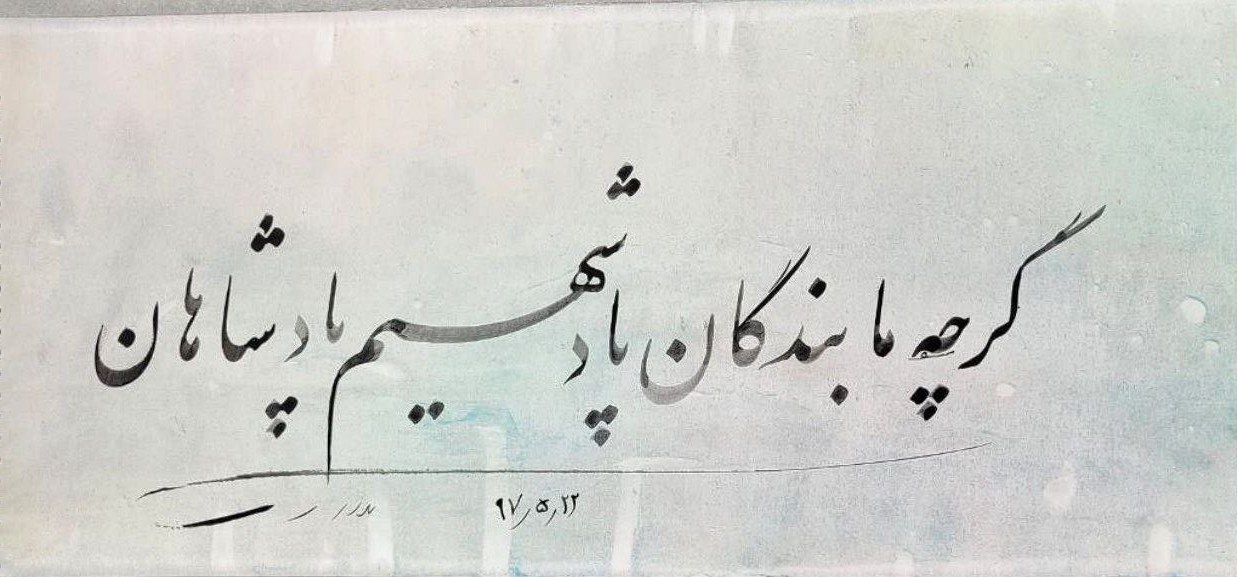 گرچه ما بندگان پادشهیم پادشاهان
۹۷٫۵٫۲۲